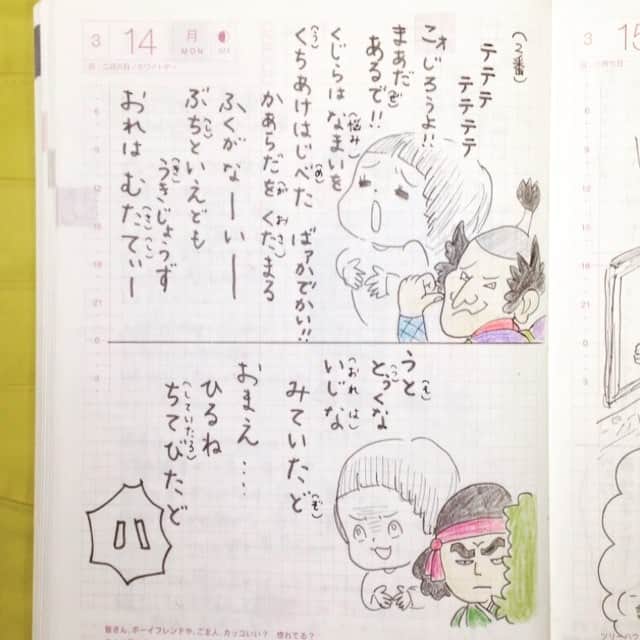 3 14 月 MON
(2番)
テテテ
テテテテ
コォじろうよ!!
まあだ
あるで!!
くじらは なまいを
(悩み)
くちあけはじべた ばァかでかい!!
かあらだを くだまる
ふくがなーいー
ぶちといえども
うきじょうず
おれは むたてぃー
うと
とうくな
いじな
(おれ は)
みていたど
(ぞ)
おまえ…
ひるね
ちてびたど
(していたろう)
皆さん、ボーイフレンドや、ご主人、カッコいい? 惚れてる?
3 15